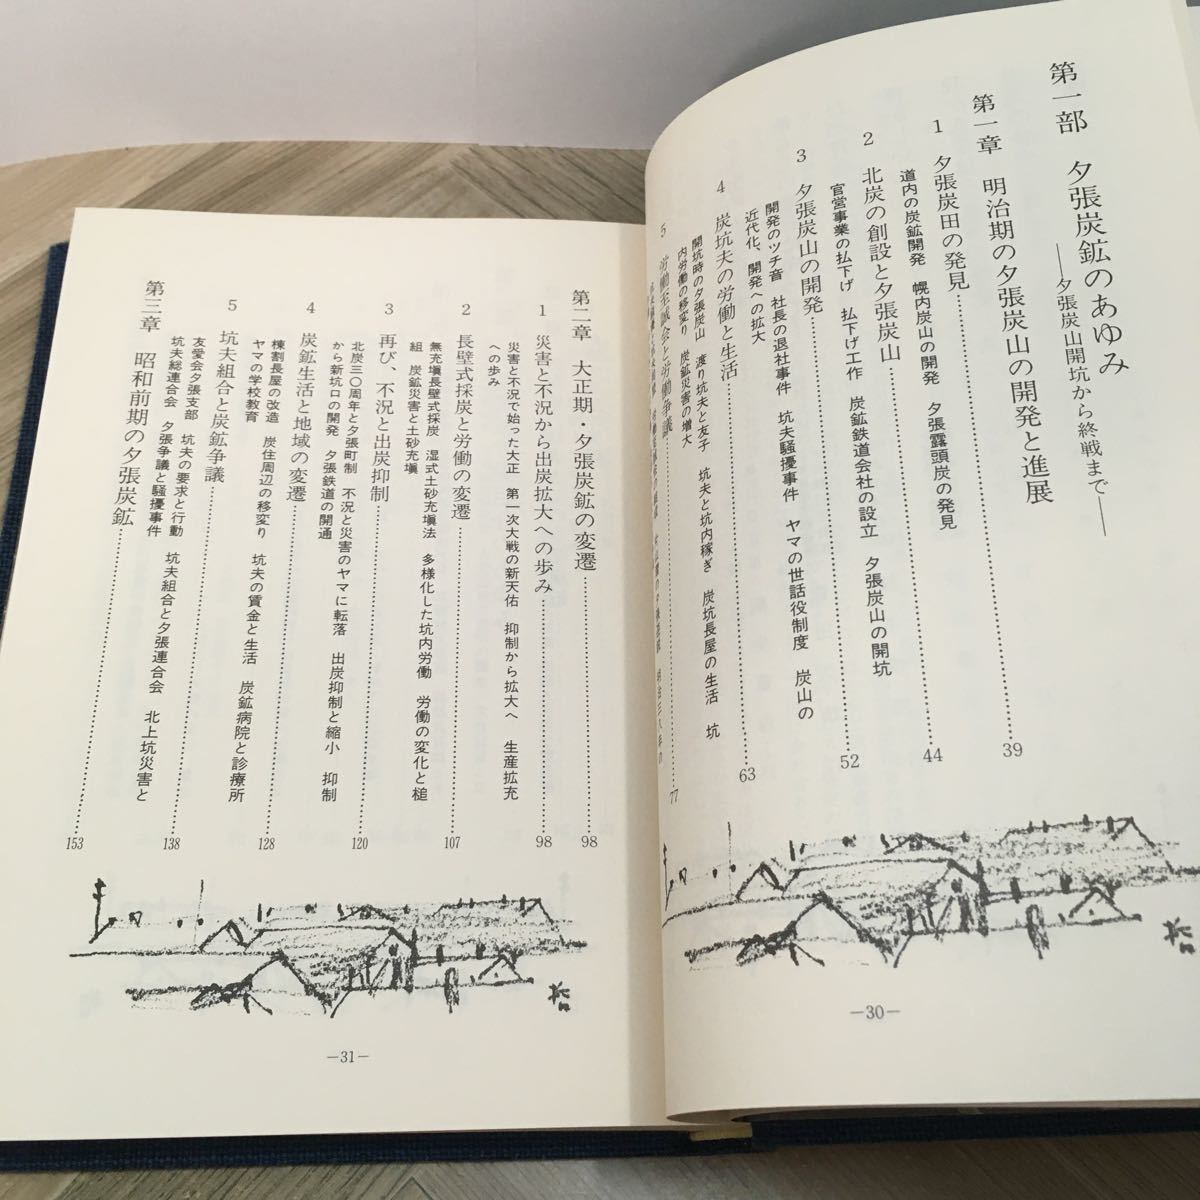 第一部　夕張炭鉱のあゆみ
――夕張炭山開坑から終戦まで――
第一章　明治期の夕張炭山の開発と進展……39
1　夕張炭田の発見……44
道内の炭鉱開発　幌内炭山の開発　夕張露頭炭の発見
2　北炭の創設と夕張炭山……52
官営事業の払下げ　払下げ工作　炭鉱鉄道会社の設立　夕張炭山の開坑
3　夕張炭山の開発
開発のツチ音　社長の退社事件　坑夫騒擾事件　ヤマの世話役制度　炭山の
近代化、開発への拡大
4　炭坑夫の労働と生活……63
開坑時の夕張炭山　渡り坑夫と友子　坑夫と坑内稼ぎ　炭坑長屋の生活　坑
内労働の移変り　炭鉱災害の増大
5　労働至誠会と労働争議……77
―30―
第二章　大正期・夕張炭鉱の変遷……98
1　災害と不況から出炭拡大への歩み……98
災害と不況で始った大正　第一次大戦の新天佑　抑制から拡大へ　生産拡充
への歩み
2　長壁式採炭と労働の変遷……107
無充塡長壁式採炭　湿式土砂充塡法　多様化した坑内労働　労働の変化と槌
組　炭鉱災害と土砂充塡
3　再び、不況と出炭抑制……120
北炭三〇周年と夕張町制　不況と災害のヤマに転落　出炭抑制と縮小　抑制
から新坑口の開発　夕張鉄道の開通
4　炭鉱生活と地域の変遷……128
棟割長屋の改造　炭住周辺の移変り　坑夫の賃金と生活　炭鉱病院と診療所
ヤマの学校教育
5　坑夫組合と炭鉱争議……138
友愛会夕張支部　坑夫の要求と行動　坑夫組合と夕張連合会　北上坑災害と
坑夫総連合会　夕張争議と騒擾事件
第三章　昭和前期の夕張炭鉱……153
―31―